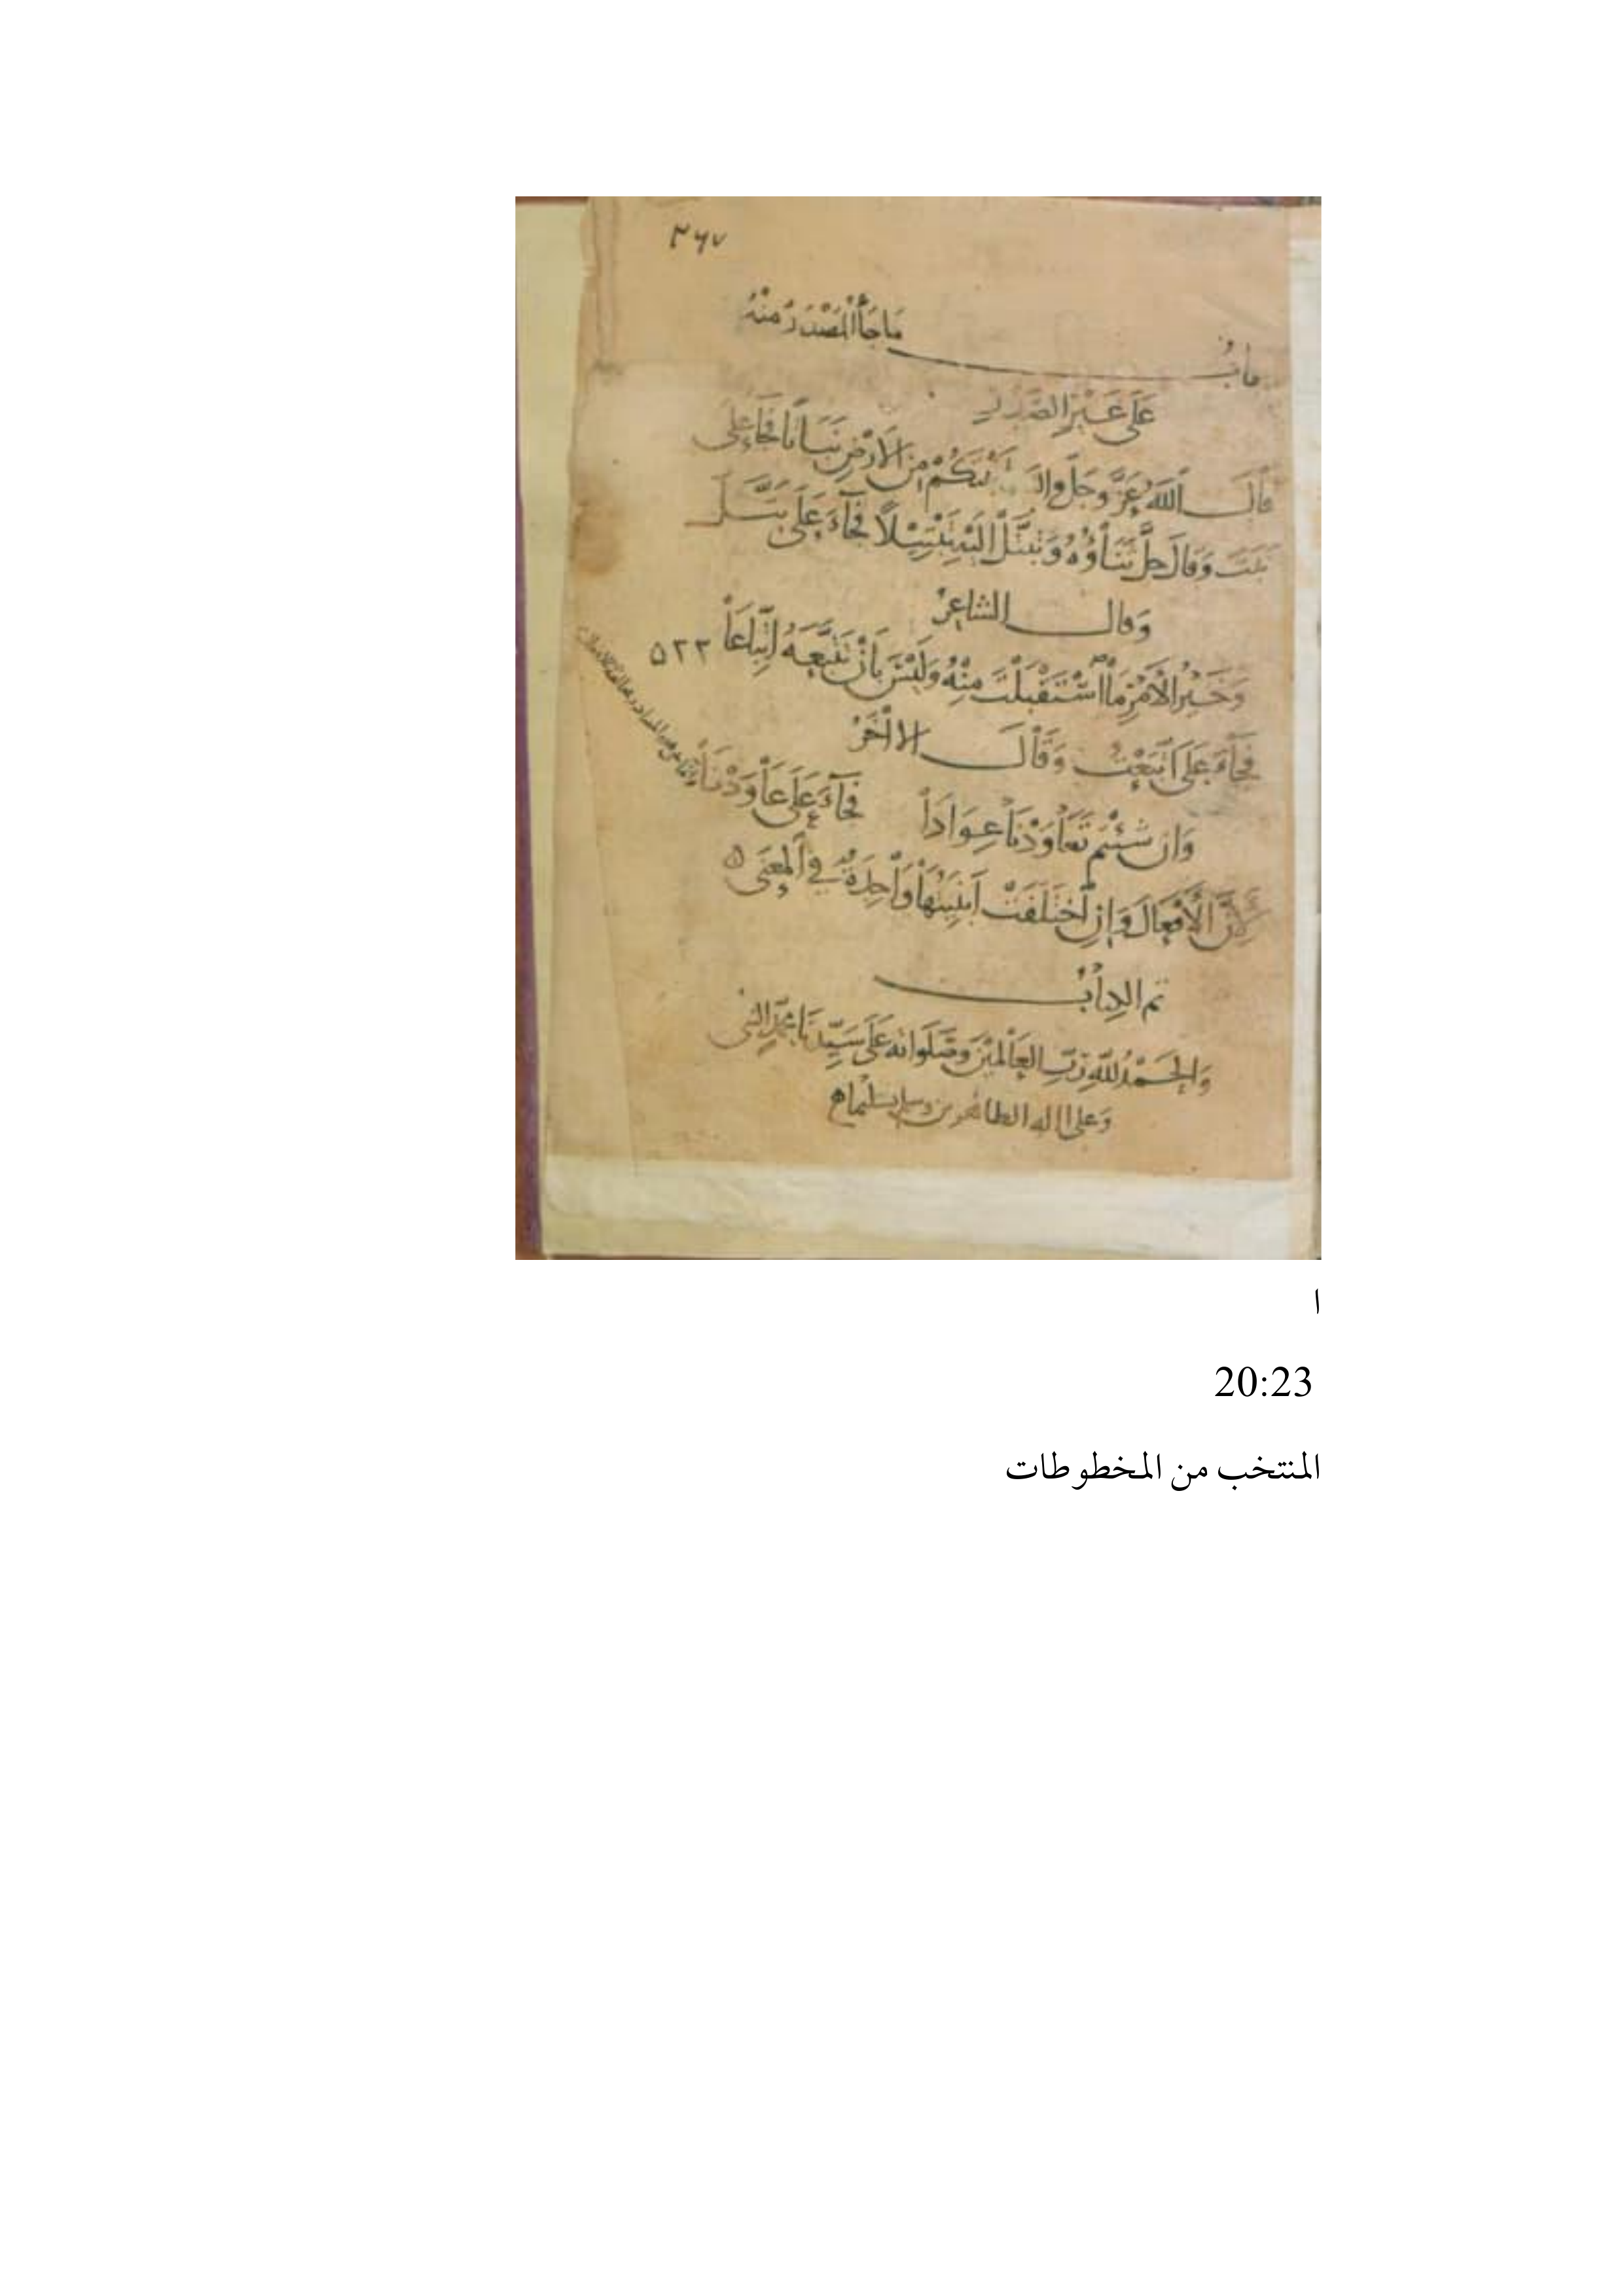 ٣٦٧
باب ما جاء المصدر منه
على غير الصدر
قال الله عز وجل والله أنبتكم من الأرض نباتا فجاء على
نبت وقال جل ثناؤه وتبتل إليه تبتيلا فجاء على بتل
وقال الشاعر
وخير الأمر ما استقبلت منه وليس بأن تتبعه اتباعا ٥٢٢
فجاء على اتبعت وقال الآخر
وإن شئتم تعاودنا عوادا فجاء على عاودنا
لأن الأفعال وإن اختلفت أبنيتها واحدة في المعنى
تم الكتاب
والحمد لله رب العالمين وصلواته على سيدنا محمد النبي
وعلى اله الطاهرين وسلم تسليما
ا
20:23
المنتخب من المخطوطات